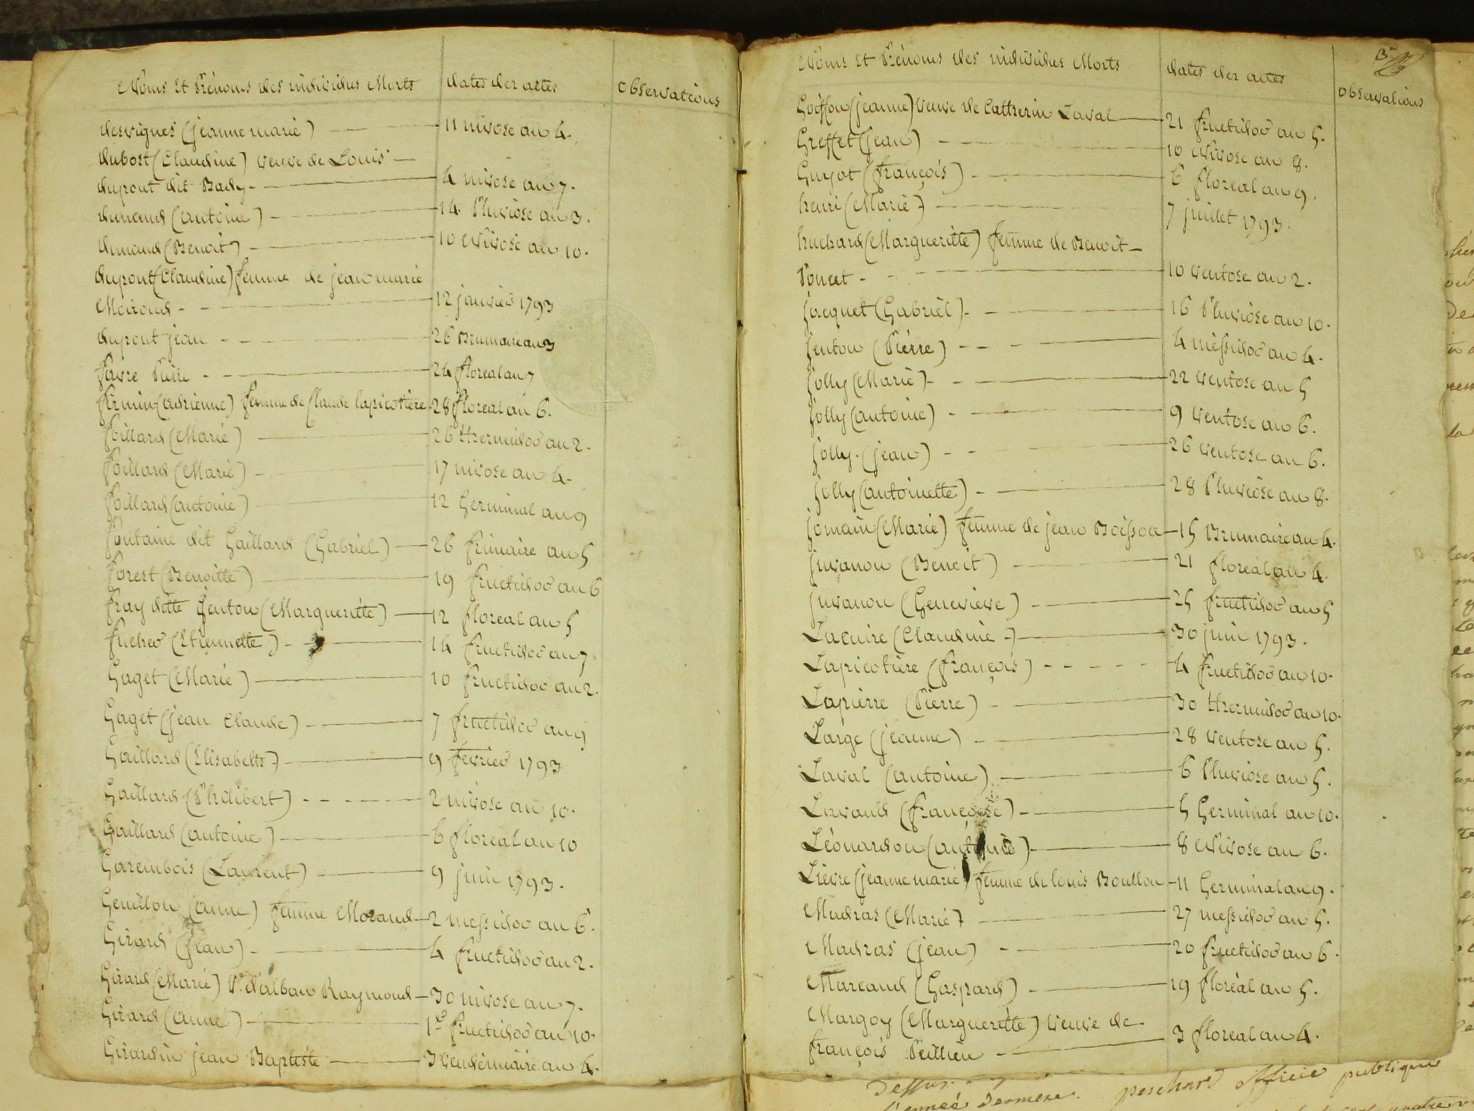 Noms et Prénoms des individus Morts dates des actes observations
desvignes (jeanne marie) 11 nivose an 4.
dubost (Claudine) veuve de Louis
dupont dit Bady 4 nivose an 7.
durand (antoine) 14 Pluviôse an 3.
durand (Benoit) 10 Nivose an 10.
dupont (Claudine) femme de jean marie
12 janvier 1793
dupont jean 26 Brumaire an 3
favre Pierre 24 floreal an 7
firmin (adrienne) femme de Claude lapicotiere 28 floreal an 6.
foillard (Marie) 26 thermidor an 2.
foillard (Marie) 17 nivose an 4.
foillard (antoine) 12 Germinal an 9
fontaine dit Gaillard (Gabriel) 26 frimaire an 5
forest (Benoitte) 19 fructidor an 6
fray ditte Jenton (Margueritte) 12 floreal an 5
fucher (Etiennette) 14 fructidor an 7
Gaget (Marie) 10 fructidor an 2.
Gaget (jean Claude) 7 fructidor an 9
Gaillard (Elisabeth) 9 fevrier 1793
Gaillard (Philibert) 2 nivose an 10.
Gaillard (antoine) 6 floreal an 10
Garembois (Laurent) 9 juin 1793.
Genillon (anne) femme Morand 2 messidor an 6.
Girard (jean) 4 fructidor an 2.
Girard (Marie) Ve d'alban Raymond 30 nivose an 7.
Girard (anne) 1er fructidor an 10.
Girardin jean Baptiste 3 vendemiaire an 4.
Noms et Prénoms des individus Morts dates des actes observations
Goiffon (jeanne) veuve de Catherin Laval 21 fructidor an 5.
Greffet (jean) 10 Nivose an 8.
Guyot (françois) 6 floreal an 9.
henri (Marie) 7 juillet 1793.
huchard (Margueritte) femme de Benoit
Poncet 10 ventose an 2.
jacquet (Gabriel) 16 Pluviôse an 10.
jenton (Pierre) 4 messidor an 4.
jolly (Marie) 22 ventose an 5
jolly (antoine) 9 ventose an 6.
jolly (jean) 26 ventose an 6.
jolly (antoinette) 28 Pluviôse an 8.
jomain (Marie) femme de jean 15 Brumaire an 4.
juvanon (Benoit) 21 floreal an 4.
juvanon (Genevieve) 25 fructidor an 5
Lacuire (Claudine) 30 juin 1793.
Lapicotière (françois) 4 fructidor an 10.
Lapierre (Pierre) 30 thermidor an 10.
Large (jeanne) 28 ventose an 5.
Laval (antoine) 6 Pluviose an 5.
Lavand (françoise) 5 Germinal an 10.
Léonardon (antoine) 8 Nivose an 6.
Lièvre (jeanne marie) femme de louis Boullon 11 Germinal an 9.
Madras (Marie) 27 messidor an 5.
Madras (jean) 20 fructidor an 6.
Marcand (Gaspard) 19 floréal an 5.
Margoy (Margueritte) veuve de
françois 3 floreal an 4.
officier publique